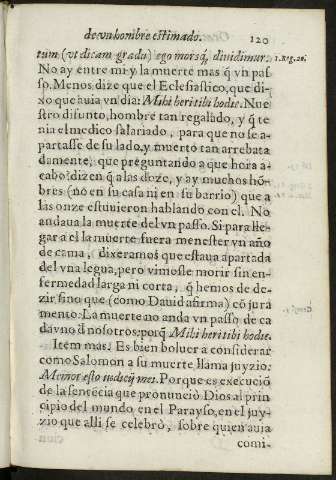 de vn hombre estimado.
120
tum (vt dicam gradu) ego morsq́; diuidimur:
1. Reg. 20.
No ay entre mi y la muerte mas q̃ vn pas-
so. Menos dize que el Eclesiastico, que di-
xo que auia vn dia: Mihi heri tibi hodie. Nue
stro difunto, hombre tan regalado, y q̃ te
nia el medico salariado, para que no se a-
partasse de su lado, y muerto tan arrebata
damente, que preguntando a que hora a-
cabo: dizen q̃ a las doze, y ay muchos hõ-
bres (no en su casa ni en su barrio) que a
las onze estuuieron hablando con el. No
andaua la muerte del vn passo. Si para lle-
gar a el la muerte fuera menester vn año
de cama, dixeramos que estaua apartada
del vna legua, pero vimosle morir sin en-
fermedad larga ni corta, q̃ hemos de de-
zir sino que (como Dauid afirma) cõ jura
mento: La muerte no anda vn passo de ca
da vno d̃ nosotros: porq̃ Mihi heri tibi hodie.
Item mas. Es bien boluer a considerar
como Salomon a su muerte llama juyzio:
Memor esto iudicij mei. Porque es execuciõ
de la sentẽcia que pronunciò Dios al prin
cipio del mundo en el Parayso, en el juy-
zio que alli se celebrò, sobre quien auia
comi-